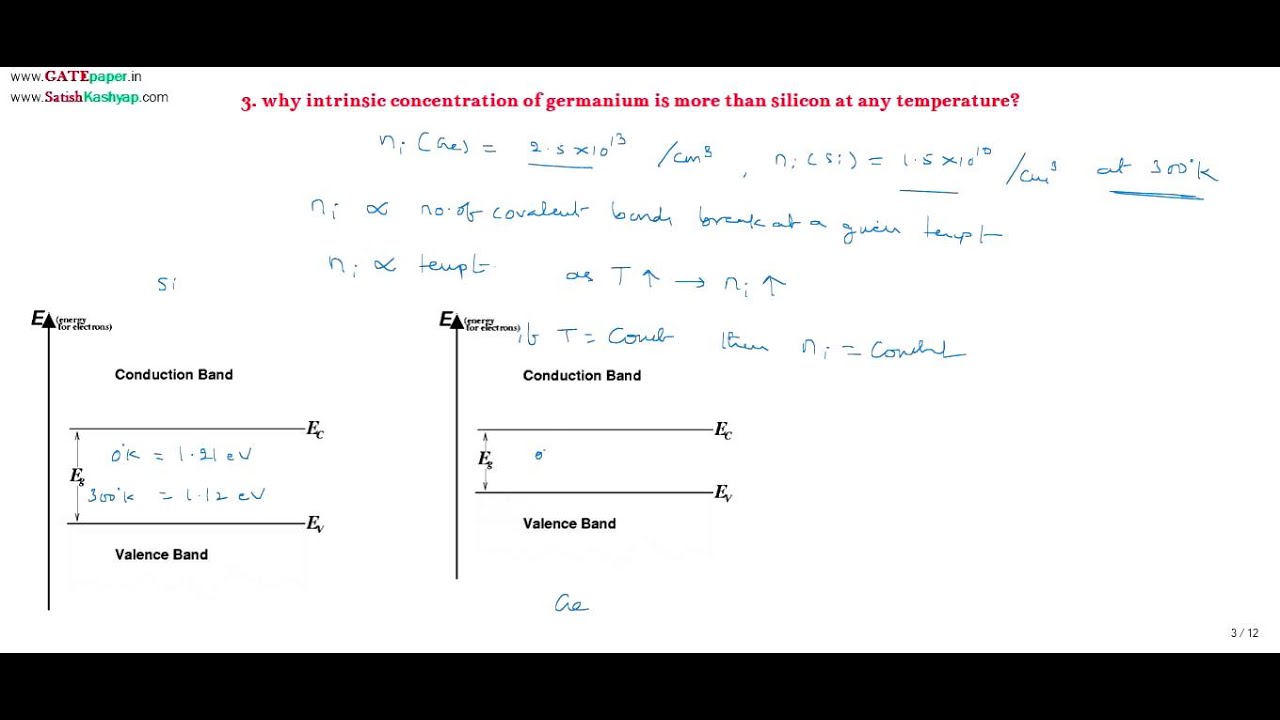 www.GATEpaper.in
www.SatishKashyap.com
3. why intrinsic concentration of germanium is more than silicon at any temperature?
ni (Ge) = 2.5 × 10^13 /cm³ , ni (Si) = 1.5 × 10^10 /cm³ at 300°K
ni ∝ no. of covalent bonds break at a given tempt
ni ∝ tempt as T ↑ → ni ↑
Si
if T = Const then ni = Constant
E (energy for electrons)
Conduction Band
EC
0°K = 1.21 eV
Eg
300°K = 1.12 eV
EV
Valence Band
E (energy for electrons)
Conduction Band
EC
Eg
0°
EV
Valence Band
Ge
3 / 12